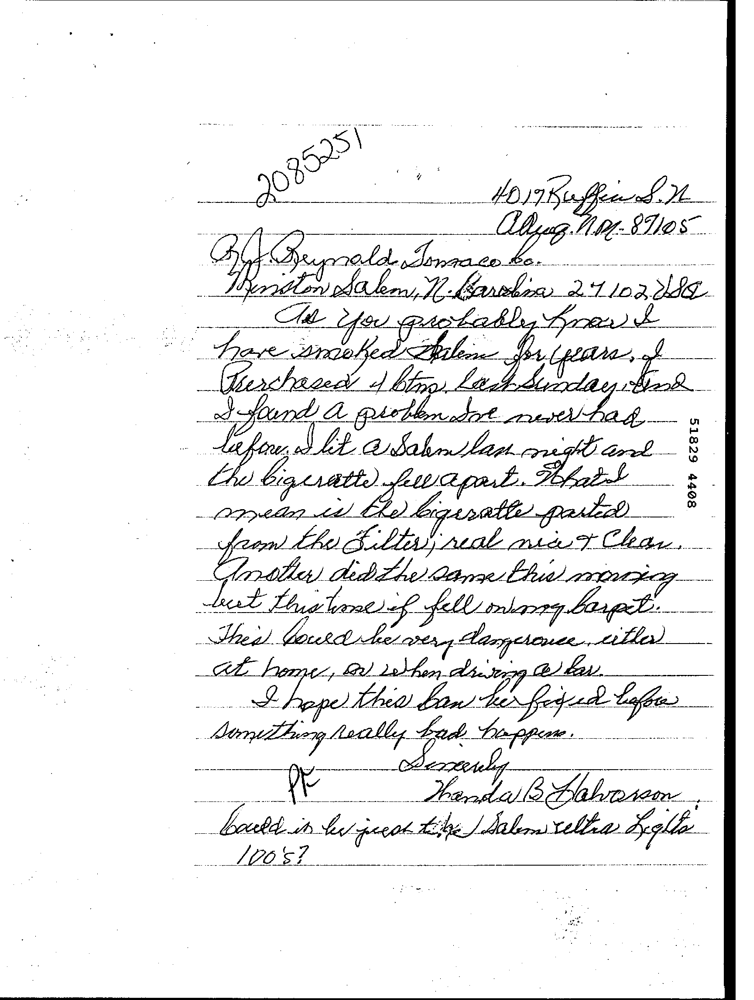 2085251
4017 Ruffin S.W
Albuq. N.M.- 87105
R.J. Reynald Tomaco Co.
Winston Salem, N. Carolina 27102 USA
As you probably know I
have smoked Salem for years. I
Purchased 4 ctns. Last Sunday, and
I found a problem I've never had
before. I lit a Salem last night and
the Cigeratte fell apart. What I
mean is the Cigeratte parted
from the Filter; real nice & Clean.
Another did the same this morning
but this time if fell on my Carpet.
This Could be very dangerouce, either
at home, or when driving a Car.
I hope this Can be fixed before
something really bad happens.
Sincerely
PK
Wanda B Halvorson
Could it be just the Salem ultra Lights
100's?
51829 4408